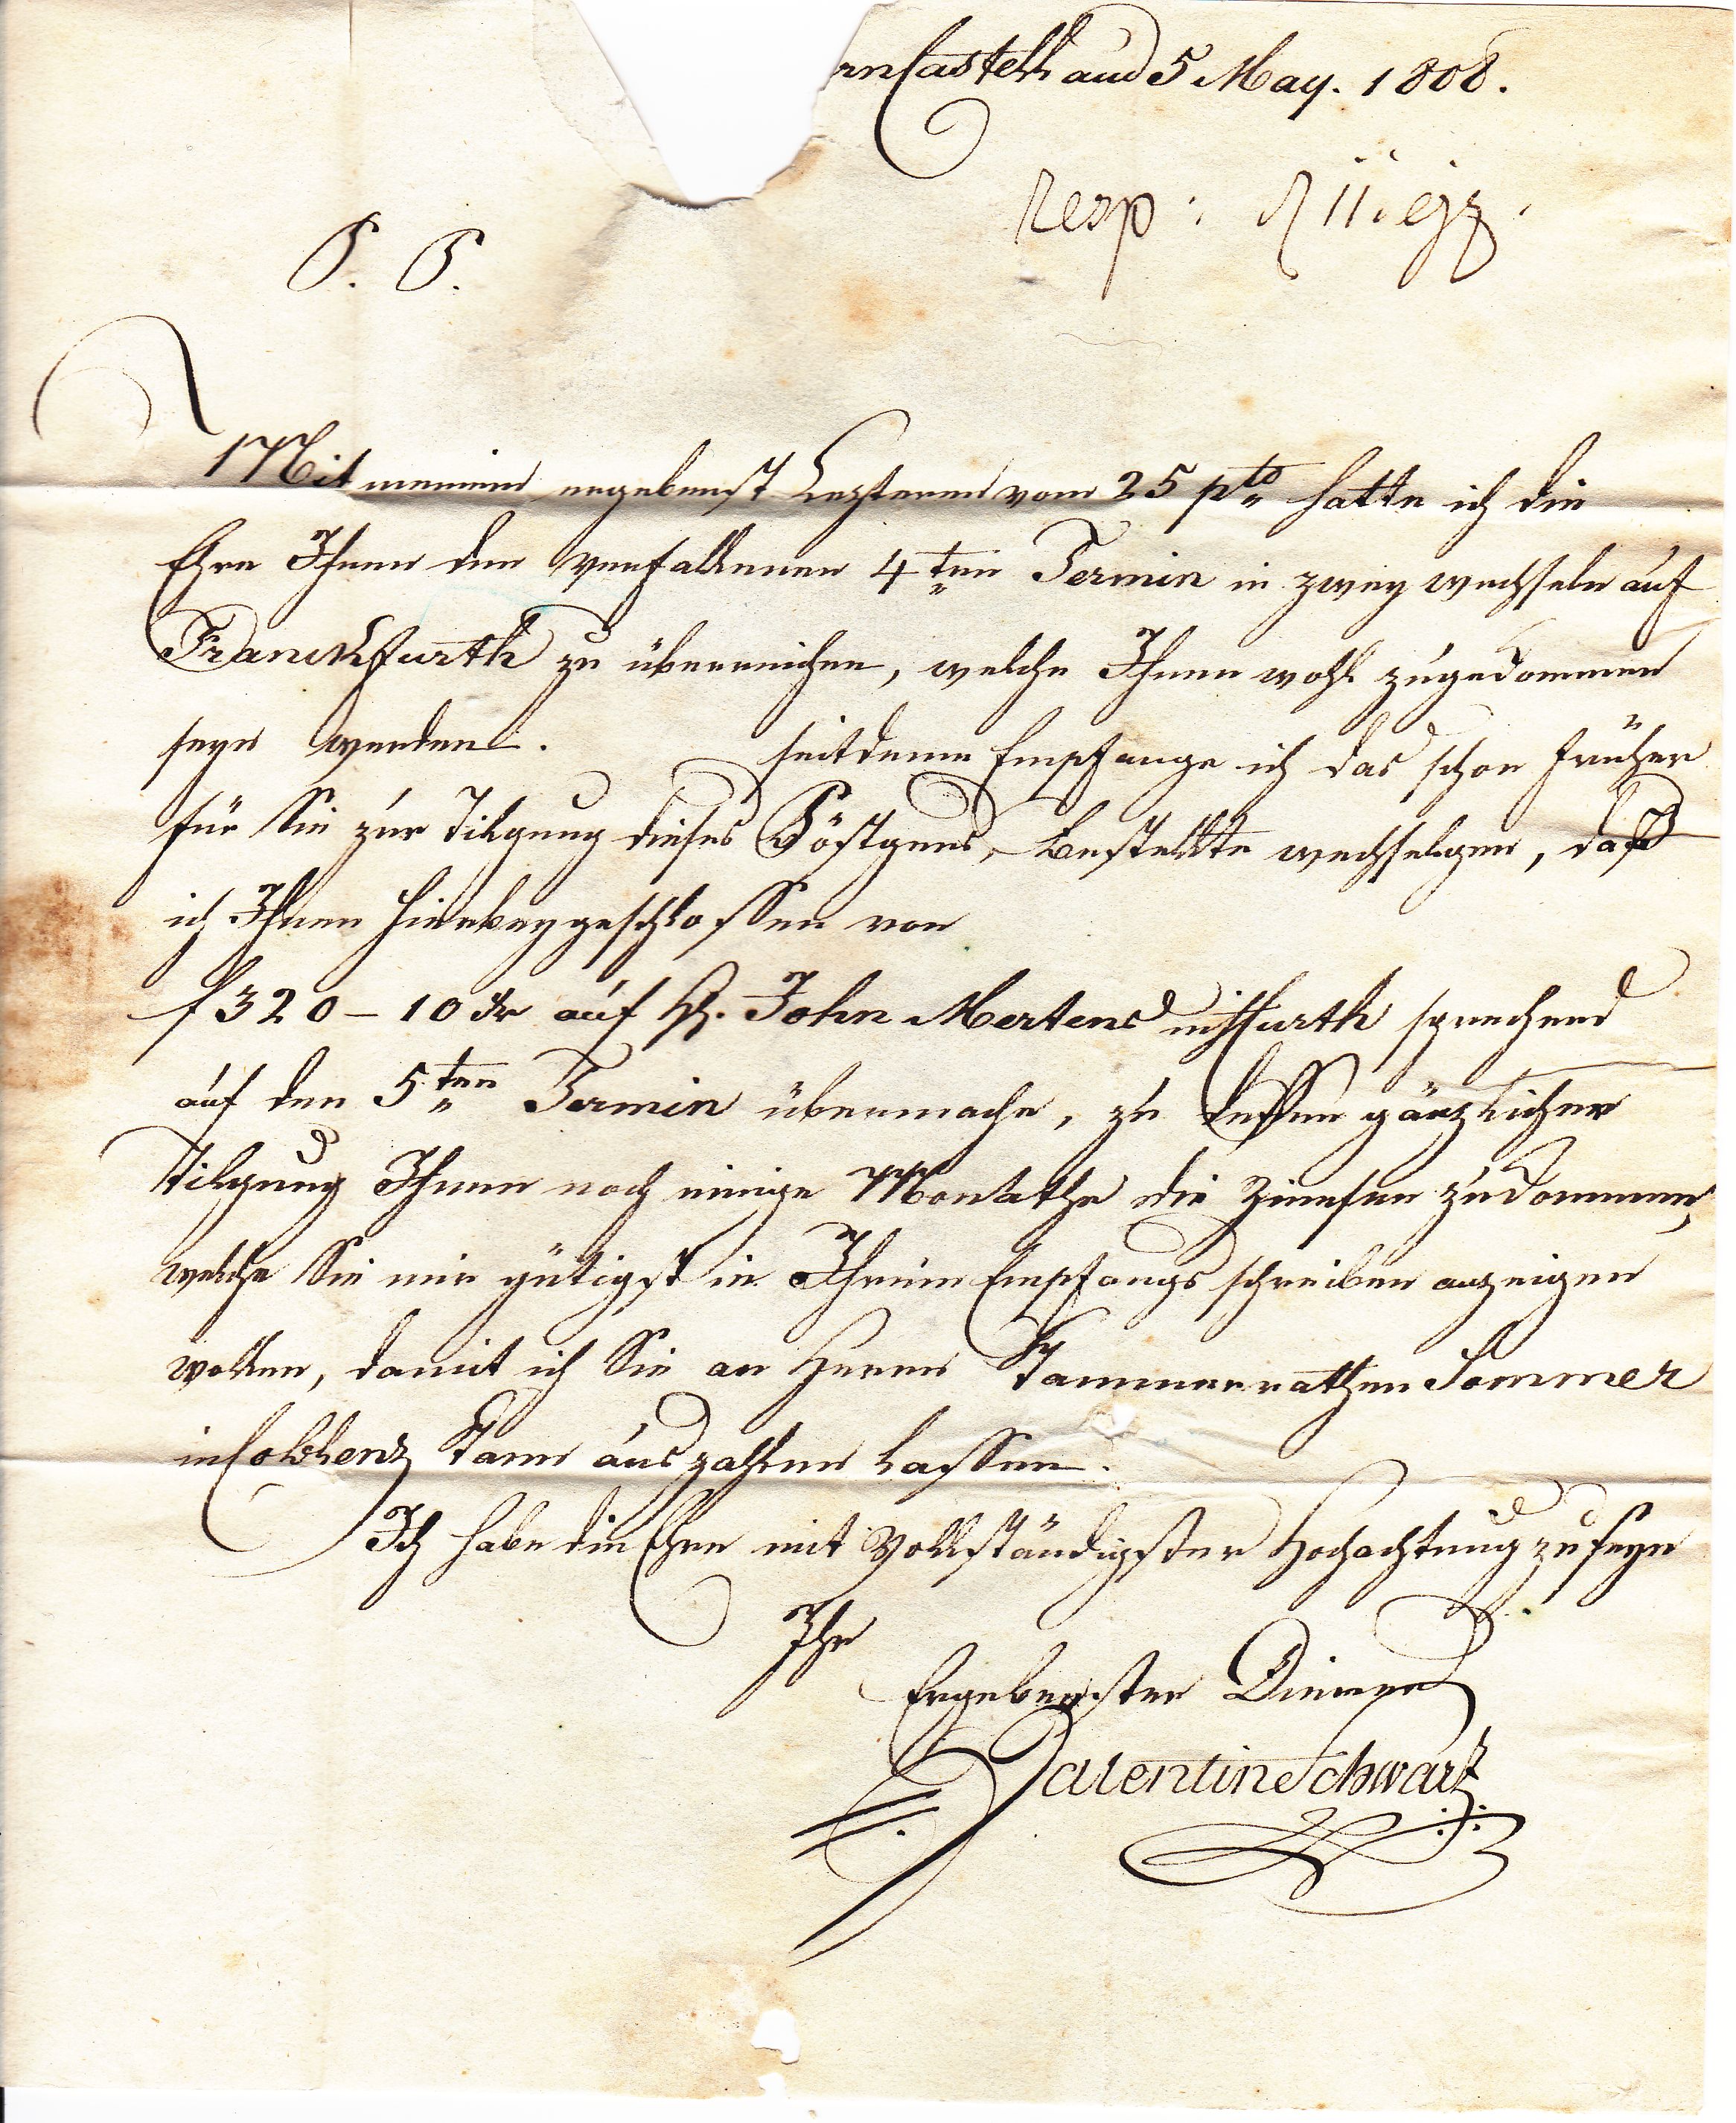 rnCastell aud 5 May. 1808.
resp: d 11. ejz.
P. P.
Mit meinem ergebenst Lezteren vom 25 pto hatte ich die
Ehre Ihnen den verfallenen 4ten Termin in zwey wechseln auf
Franckfurth zu überreichen, welche Ihnen wohl zugekommen
seyn werden. seitdeme Empfange ich das schon früher
für Sie zur Tilgung dieses Pöstgens, bestellte wechselgen, daß
ich Ihnen hierbey geschlossen von
f 320 – 10 Xr auf H. John Mertens in ffurth sprechend
auf den 5ten Termin übermache, zu dessen gänzlicher
Tilgung Ihnen noch einige Monathe die Zinnsen zukommen,
welche Sie mir gütigst in Ihrem Empfangs schreiben anzeigen
wollen, damit ich Sie an Herrn Kammerrathen Sommer
in Coblenz kann auszahlen lassen.
Ich habe die Ehre mit Vollständigster Hochachtung zu seyn
Ihr
Ergebenster Diener
Valentin Schwarz